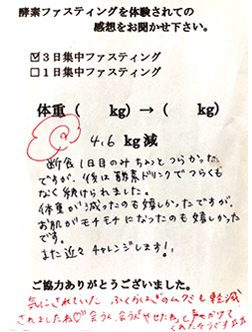 酵素ファスティングを体験されての
感想をお聞かせ下さい。
☑3日集中ファスティング
□1日集中ファスティング
体重(　　kg)→(　　kg)
4.6kg減
断食1日目のみちょっとつらかった
ですが、後は酵素ドリンクでつらくも
なく続けられました。
体重が減ったのも嬉しかったですが、
お肌がモチモチになったのも嬉しかった
です。
また近々チャレンジします!!
ご協力ありがとうございました。
気にされていた ふくらはぎのムクミも軽減
されましたね♡会う人、会う人「やせたね」と声をかけて
くれたそうですね